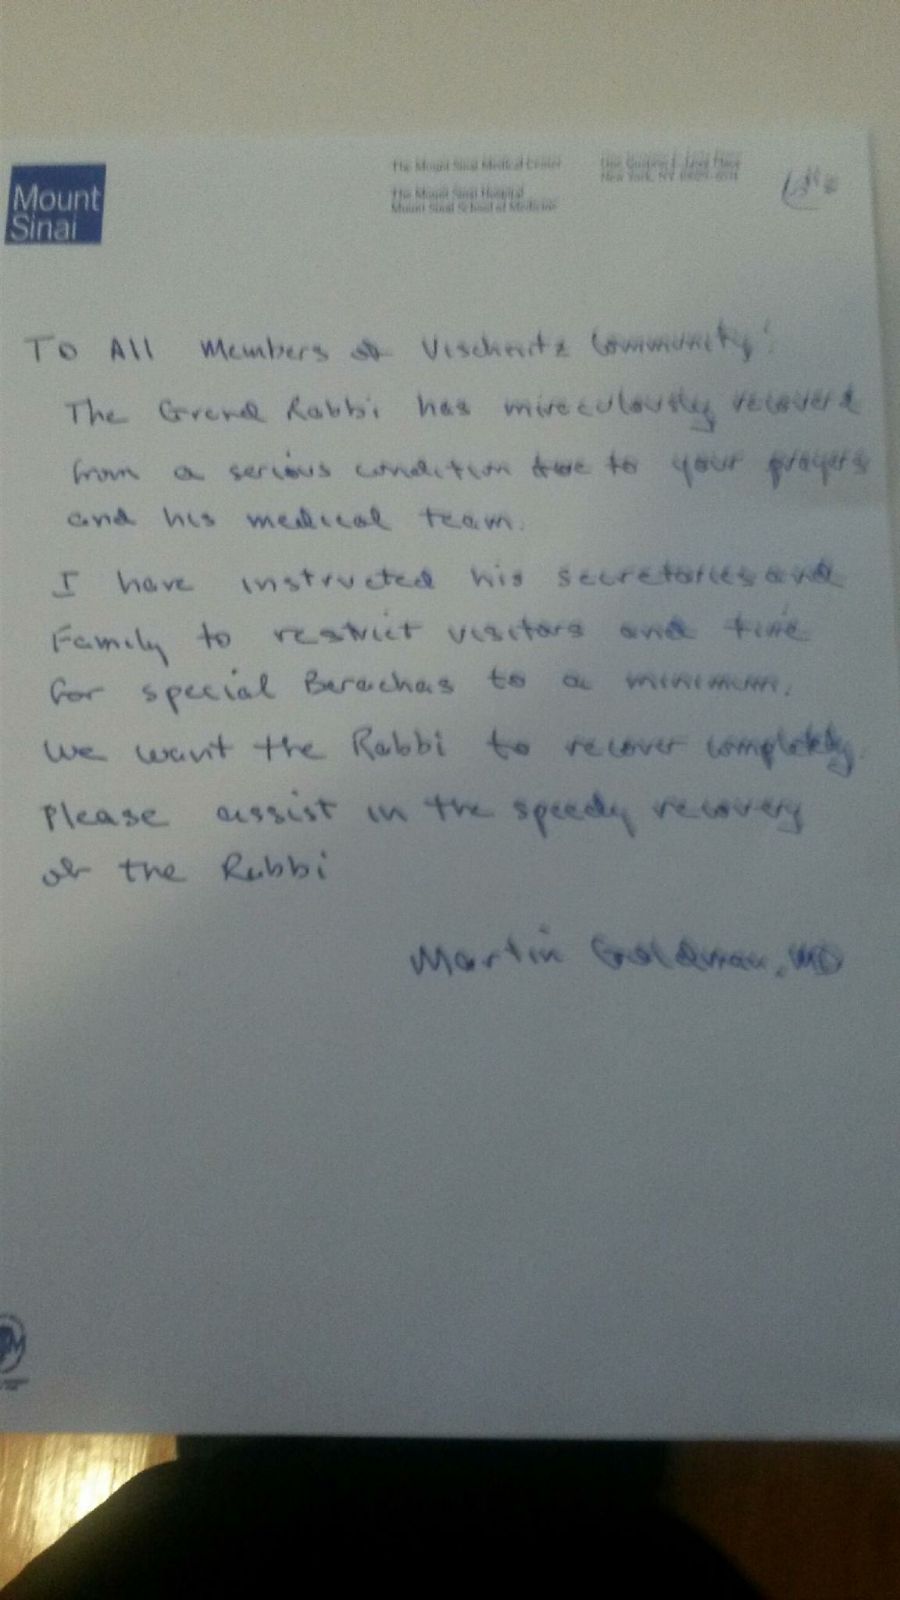 Mount
Sinai
The Mount Sinai Medical Center
The Mount Sinai Hospital
Mount Sinai School of Medicine
One Gustave L. Levy Place
New York, NY
To All Members of Vischnitz Community:
The Grend Rabbi has miraculously recovered
from a serious condition due to your prayers
and his medical team.
I have instructed his secretaries and
Family to restrict visitors and time
for special Berachas to a minimum.
We want the Rabbi to recover completely.
Please assist in the speedy recovery
of the Rabbi
Martin Goldman, MD